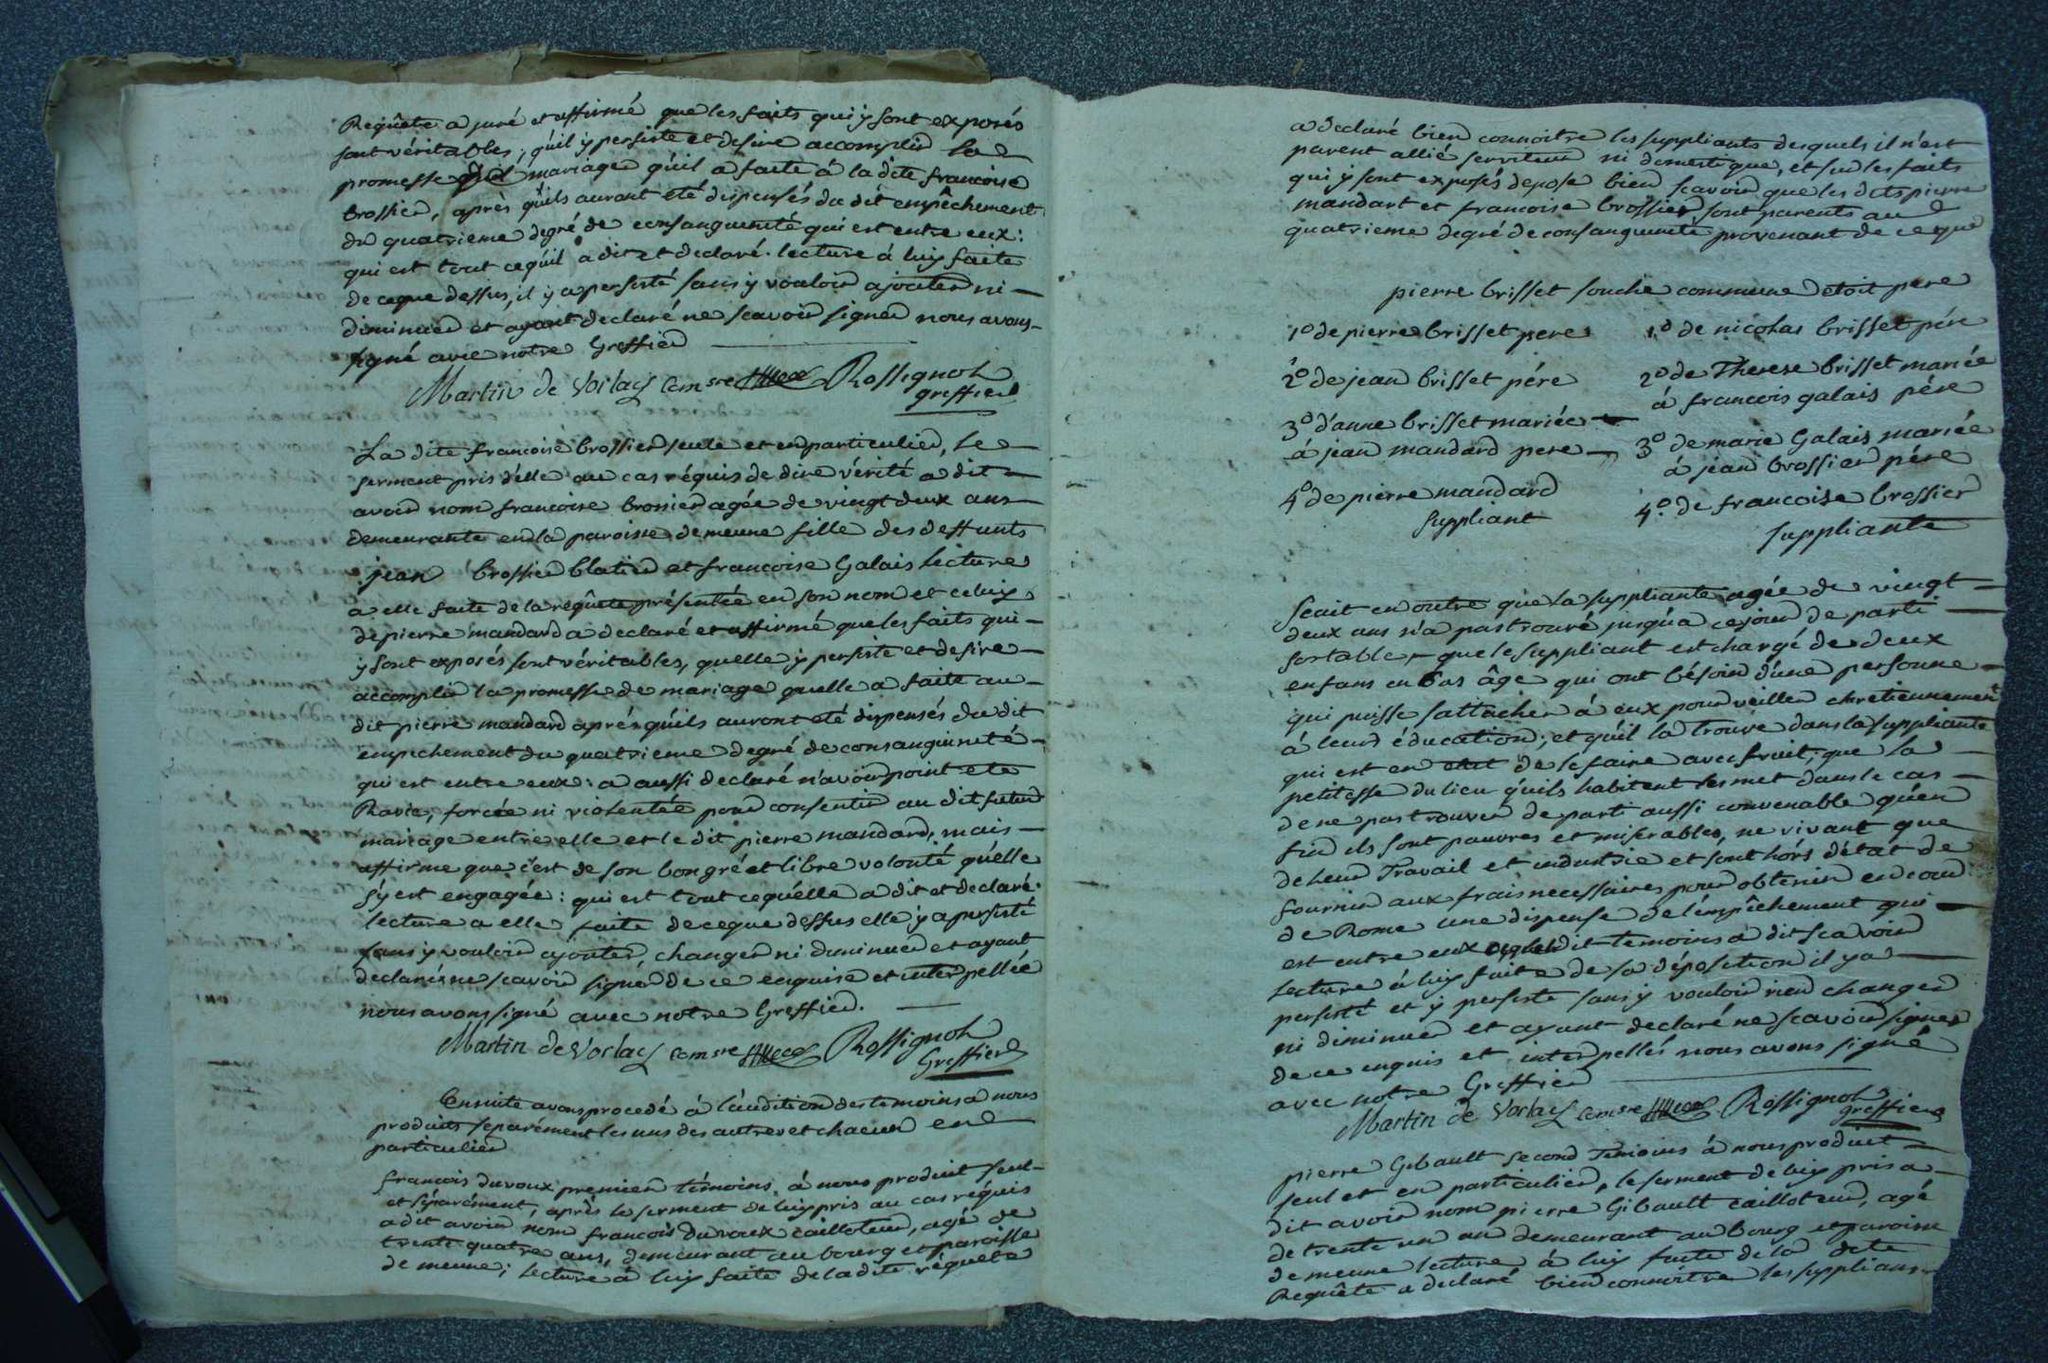 Requête a juré et affirmé que les faits qui y sont exposés
sont véritables, qu'il y persiste et desire accomplir la
promesse de mariage qu'il a faite à la dite francoise
brossier, après qu'ils auront été dispensés du dit empêchement
du quatrieme degré de consanguinité qui est entre eux :
qui est tout ce qu'il a dit et declaré. lecture à luy faite
de ce que dessus, il y a persisté sans y vouloir ajouter ni
diminuer et ayant declaré ne scavoir signer nous avons
signé avec notre Greffier
Martin de Vorlay Comsre Rossignol
greffier
La dite francoise brossier seule et en particulier, le
serment pris d'elle au cas réquis de dire vérité a dit
avoir nom francoise brossier agée de vingt deux ans
demeurante en la paroisse de meune fille des deffunts
jean brossier blatier et francoise Galais lecture
a elle faite de la requête présentée en son nom et celuy
de pierre mandard a declaré et affirmé que les faits qui
y sont exposés sont véritables, quelle y persiste et desire
accomplir la promesse de mariage quelle a faite au
dit pierre mandard aprés qu'ils auront été dispensés du dit
empechement du quatrieme degré de consanguinité
qui est entre eux : a aussi declaré n'avoir point eté
Ravie, forcée ni violentée pour consentir au dit futur
mariage entre elle et le dit pierre mandard, mais
affirme que c'est de son bon gré et libre volonté qu'elle
s'y est engagée : qui est tout ce qu'elle a dit et declaré.
lecture a elle faite de ce que dessus elle y a persisté
sans y vouloir ajouter, changer ni diminuer et ayant
declaré ne scavoir signer de ce enquise et interpellée
nous avons signé avec notre Greffier.
Martin de Vorlay Comsre Rossignol
Greffier
Ensuite avons procedé à l'audition des temoins a nous
produits separément les uns des autres et chacun en
particulier
francois duvoux premier témoins à nous produit seul
et séparément, après le serment de luy pris au cas réquis
a dit avoir nom francois duvoux cailloteur, agé de
trente quatre ans, demeurant au bourg et paroisse
de meune ; lecture à luy faite de la dite réquete
a declaré bien connoitre les suppliants desquels il n'est
parent allié serviteur ni domestique, et sur les faits
qui y sont exposés depose bien scavoir que les dits pierre
mandart et francoise brossier sont parents au
quatrieme degré de consanguinité provenant de ce que
pierre brisset souche commune etoit pere
1o de pierre brisset pere
1o de nicolas brisset pére
2o de jean brisset pére
2o de Therese brisset mariée
à francois galais pére
3o d'anne brisset mariée
à jean mandard pere
3o de marie Galais mariée
à jean brossier pére
4o de pierre mandard
suppliant
4o. de francoise brossier
suppliante
Scait en outre que la suppliante agée de vingt
deux ans n'a pas trouvé jusqu'a ce jour de parti
sortable, que le suppliant est chargé de deux
enfans en bas âge qui ont bésoin d'une personne
qui puisse s'attacher à eux pour veiller chretiennement
à leur éducation ; et qu'il la trouve dans la suppliante
qui est en etat de le faire avec fruit ; que la
petitesse du lieu qu'ils habitent les met dans le cas
de ne pas trouver de parti aussi convenable qu'en
fin ils sont pauvres et misérables, ne vivant que
de leur Travail et industrie et sont hors d'état de
fournir aux frais necessaires pour obtenir en cour
de Rome une dispense de l'empêchement qui
est entre eux dit temoins a dit scavoir
lecture à luy faite de sa déposition il y a
persisté et y persiste sans y vouloir rien changer
ni diminuer et ayant declaré ne scavoir signer
de ce enquis et interpellés nous avons signé
avec notre Greffier
Martin de Vorlay Comsre Rossignol
greffier
pierre Gibault second Temoins à nous produit
seul et en particulier, le serment de luy pris a
dit avoir nom pierre Gibault cailloteur, agé
de trente un an demeurant au bourg et paroisse
de meune lecture à luy faite de la dite
Requête a declaré bien connoitre les supplians